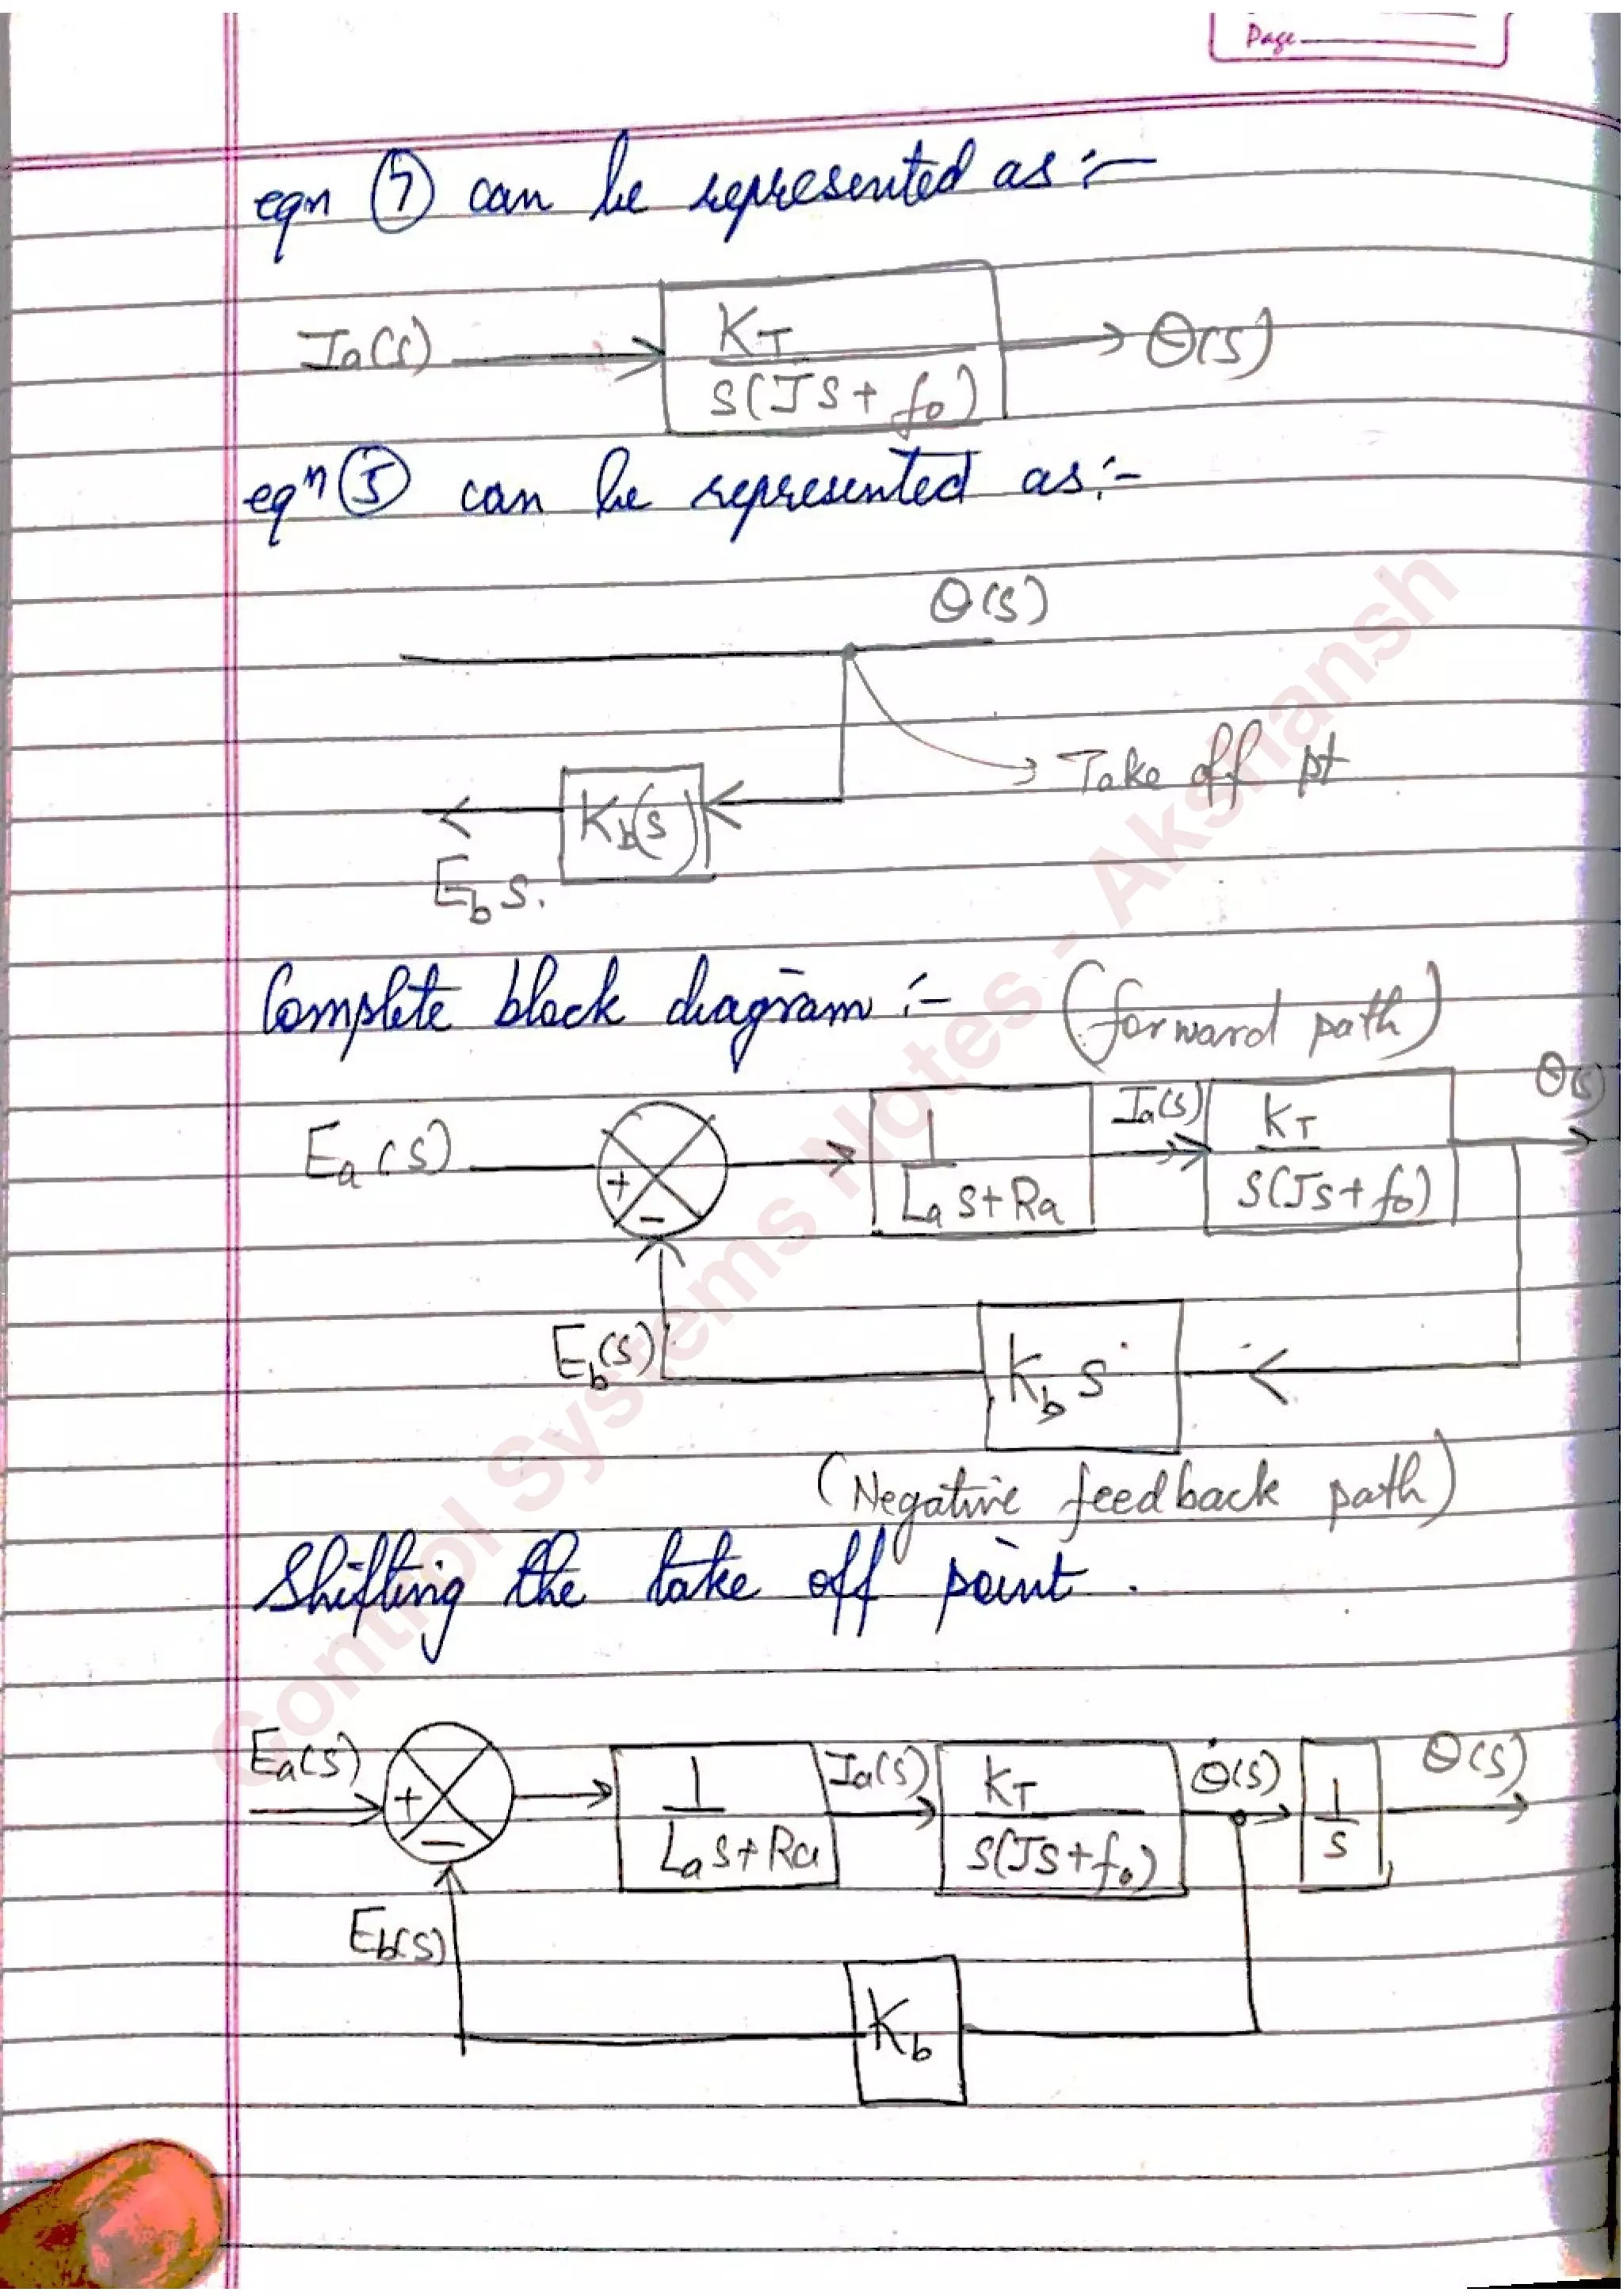 Page
eqn ⑦ can be represented as :-
Ia(s) K_T / S(JS + f₀) Θ(s)
eqⁿ ⑤ can be represented as :-
Θ(s)
Take off pt
K_b(s)
E_b s.
Complete block diagram :- (forward path)
Ea(s) + - 1 / La s+Ra Ia(s) K_T / S(Js+f₀) Θ(s)
E_b(s) K_b s
(Negative feedback path)
Shifting the take off point.
Ea(s) + - 1 / La s+Ra Ia(s) K_T / S(Js+f₀) Θ̇(s) 1/s Θ(s)
Eb(s)
K_b
Control Systems Notes - Akshansh